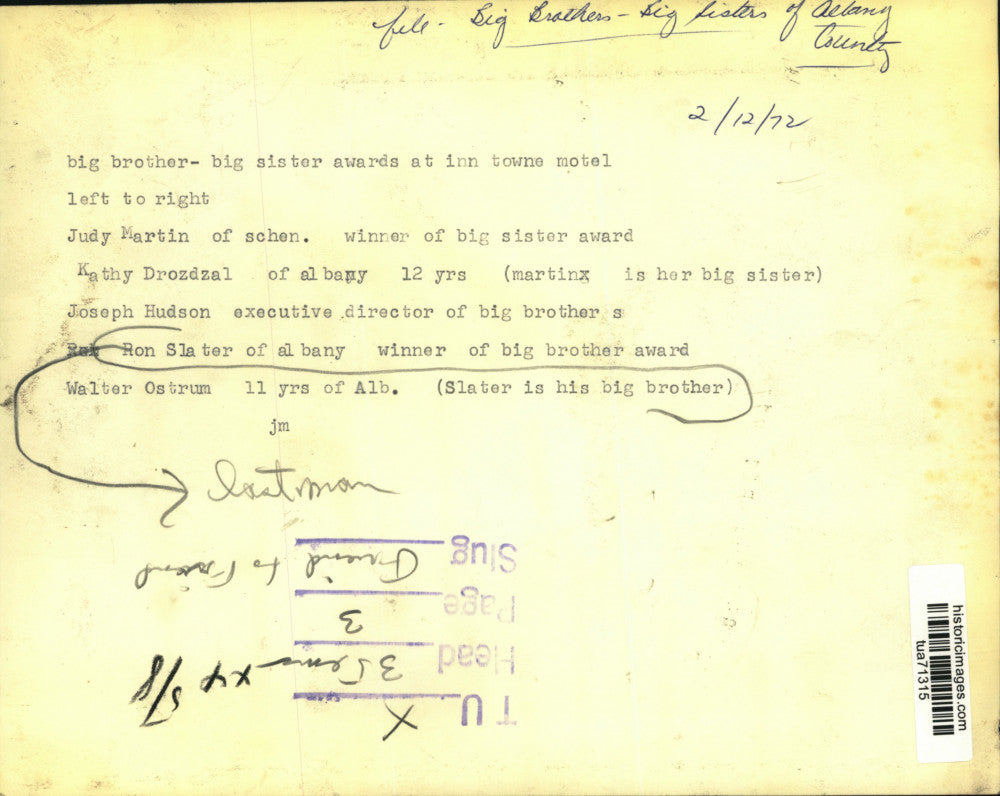 file - Big Brothers - Big Sisters of Albany
County
2/12/72
big brother- big sister awards at inn towne motel
left to right
Judy Martin of schen. winner of big sister award
Kathy Drozdzal of albany 12 yrs (martinx is her big sister)
Joseph Hudson executive director of big brother s
Ron Slater of albany winner of big brother award
Walter Ostrum 11 yrs of Alb. (Slater is his big brother)
jm
last man
TU X
Head 3 5 x4 5/8
Page 3
Slug Friend to Friend
historicimages.com
tua71315